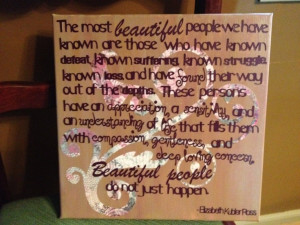 The most beautiful people we have
known are those who have known
defeat, known suffering, known struggle,
known loss and have found their way
out of the depths. These persons
have an appreciation, a sensitivity, and
an understanding of life that fills them
with compassion, gentleness, and
deep loving concern.
Beautiful people
do not just happen.
-Elizabeth Kubler Ross